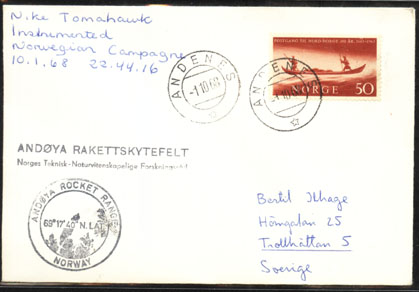 Nike Tomahawk
Instrumented
Norwegian Campagne
10.1.68 22.44.16
ANDENES
-1 10 68
ANDENES
-1 10
POSTGANG TIL NORD-NORGE
NORGE 50
ANDØYA RAKETTSKYTEFELT
Norges Teknisk-Naturvitenskapelige
ANDØYA ROCKET RANGE
69°17'40" N.LAT.
NORWAY
Bertil Ilhage
Höngatan 25
Trollhättan 5
Sverige